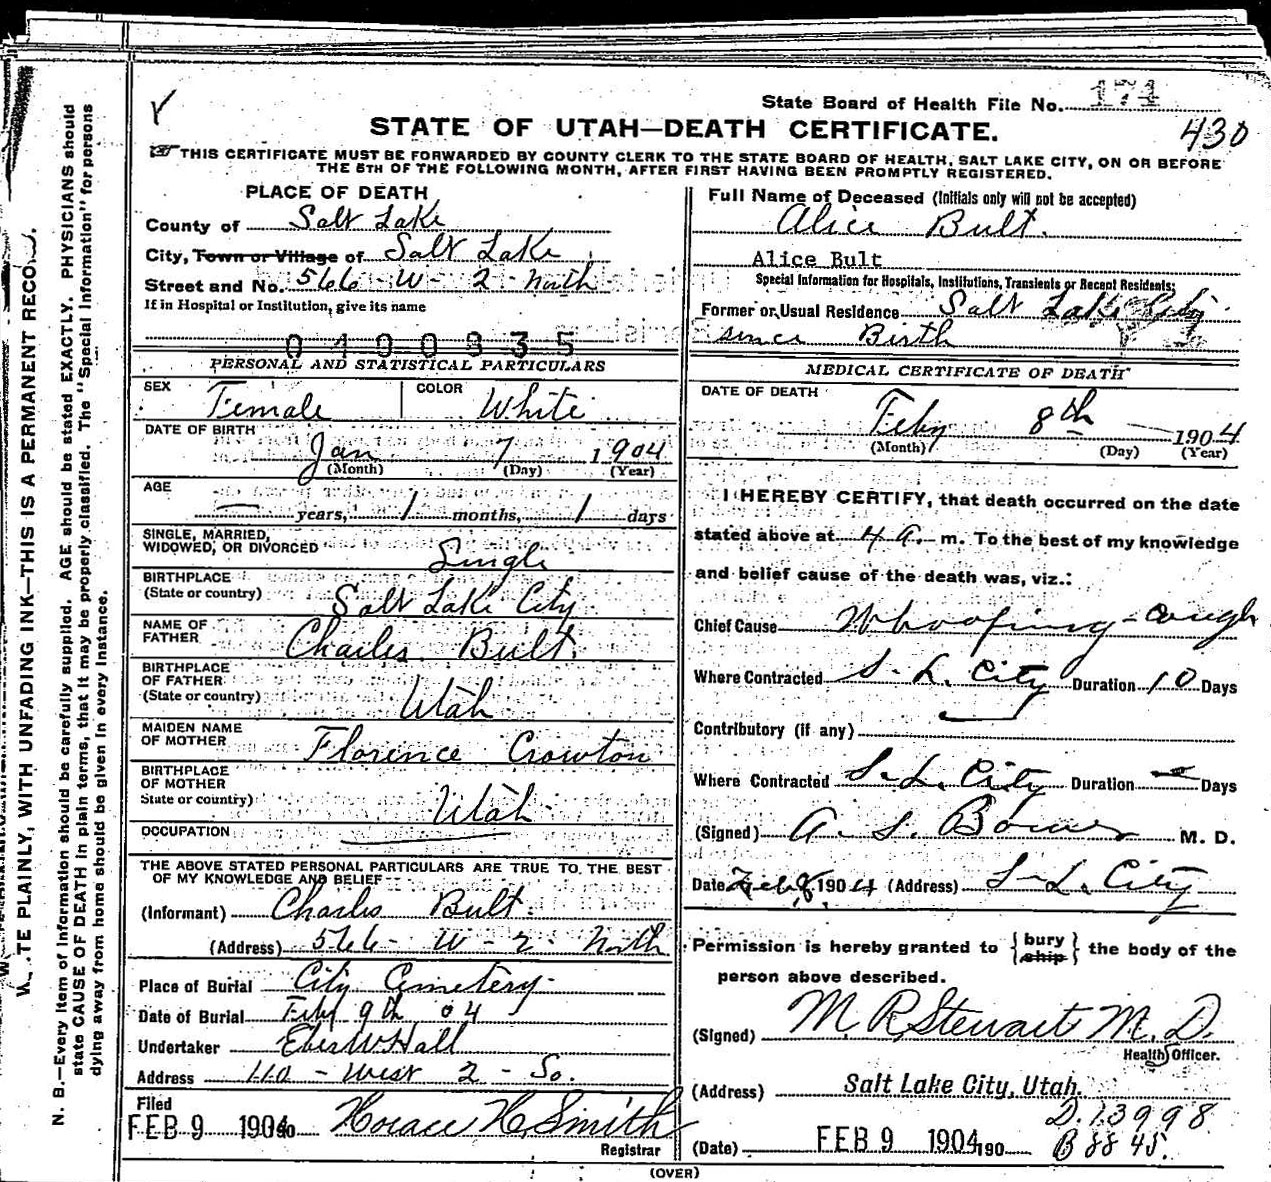 State Board of Health File No. 174
STATE OF UTAH—DEATH CERTIFICATE.
430
THIS CERTIFICATE MUST BE FORWARDED BY COUNTY CLERK TO THE STATE BOARD OF HEALTH, SALT LAKE CITY, ON OR BEFORE
THE 5TH OF THE FOLLOWING MONTH, AFTER FIRST HAVING BEEN PROMPTLY REGISTERED.
PLACE OF DEATH
County of Salt Lake
City, Town or Village of Salt Lake
Street and No. 566 - W - 2 - North
If in Hospital or Institution, give its name
PERSONAL AND STATISTICAL PARTICULARS
SEX Female COLOR White
DATE OF BIRTH
Jan 7 1904
(Month) (Day) (Year)
AGE
— years, 1 months, 1 days
SINGLE, MARRIED,
WIDOWED, OR DIVORCED Single
BIRTHPLACE
(State or country) Salt Lake City
NAME OF
FATHER Charles Bult
BIRTHPLACE
OF FATHER
(State or country) Utah
MAIDEN NAME
OF MOTHER Florence Crowton
BIRTHPLACE
OF MOTHER
State or country) Utah
OCCUPATION
THE ABOVE STATED PERSONAL PARTICULARS ARE TRUE TO THE BEST
OF MY KNOWLEDGE AND BELIEF
(Informant) Charles Bult.
(Address) 566 - W - 2 - North
Place of Burial City Cemetery
Date of Burial Feby 9th 04
Undertaker Eber W Hall
Address 110 - West 2 - So.
Filed
FEB 9 1904 190 Horace H. Smith
Registrar
Full Name of Deceased (Initials only will not be accepted)
Alice Bult.
Alice Bult
Special Information for Hospitals, Institutions, Transients or Recent Residents:
Former or Usual Residence Salt Lake City
since Birth
MEDICAL CERTIFICATE OF DEATH
DATE OF DEATH
Feby 8th 1904
(Month) (Day) (Year)
I HEREBY CERTIFY, that death occurred on the date
stated above at 4 a. m. To the best of my knowledge
and belief cause of the death was, viz.:
Chief Cause Whooping-cough
Where Contracted S. L. City Duration 10 Days
Contributory (if any)
Where Contracted S. L. City Duration — Days
(Signed) A. S. Bower M. D.
Date Feb 8, 1904 (Address) S. L. City
Permission is hereby granted to {bury ship} the body of the
person above described.
(Signed) M. R. Stewart M. D.
Health Officer.
(Address) Salt Lake City, Utah.
D. 13998
(Date) FEB 9 1904 190
B 8845.
(OVER)
W TE PLAINLY, WITH UNFADING INK—THIS IS A PERMANENT RECO
N. B.—Every item of information should be carefully supplied. AGE should be stated EXACTLY. PHYSICIANS should
state CAUSE OF DEATH in plain terms, that it may be properly classified. The "Special Information" for persons
dying away from home should be given in every instance.